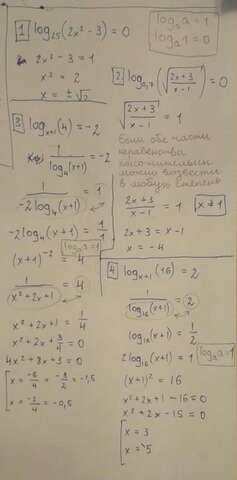 log_a a = 1
log_a 1 = 0
1 log₂₅(2x² - 3) = 0
2x² - 3 = 1
x² = 2
x = ±√2
2 log₀,₇(√(2x+3 / x-1)) = 0
√(2x+3 / x-1) = 1
Если обе части
неравенства
можно возвести
в любую степень
2x+3 / x-1 = 1 x ≠ 1
2x+3 = x-1
x = -4
3 log_{x+1}(4) = -2
1 / log₄(x+1) = -2
1 / -2log₄(x+1) = 1
-2log₄(x+1) = 1/1
log_a a = 1
(x+1)⁻² = 4
1 / (x²+2x+1) = 4
x²+2x+1 = 1/4
x²+2x+3/4 = 0
4x²+8x+3 = 0
x = -6/4 = -3/2 = -1,5
x = -2/4 = -0,5
4 log_{x+1}(16) = 2
1 / log₁₆(x+1) = 2
log₁₆(x+1) = 1/2
2log₁₆(x+1) = 1 log_a a = 1
(x+1)² = 16
x²+2x+1-16 = 0
x²+2x-15 = 0
x = 3
x = -5